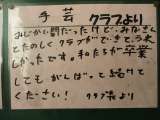 手芸 クラブより
みじかい間だったけど、みなさん
とてたのしくクラブができて、うれ
しかったです。私たちが卒業
してもがんばって続けて
ください！ クラブ長より